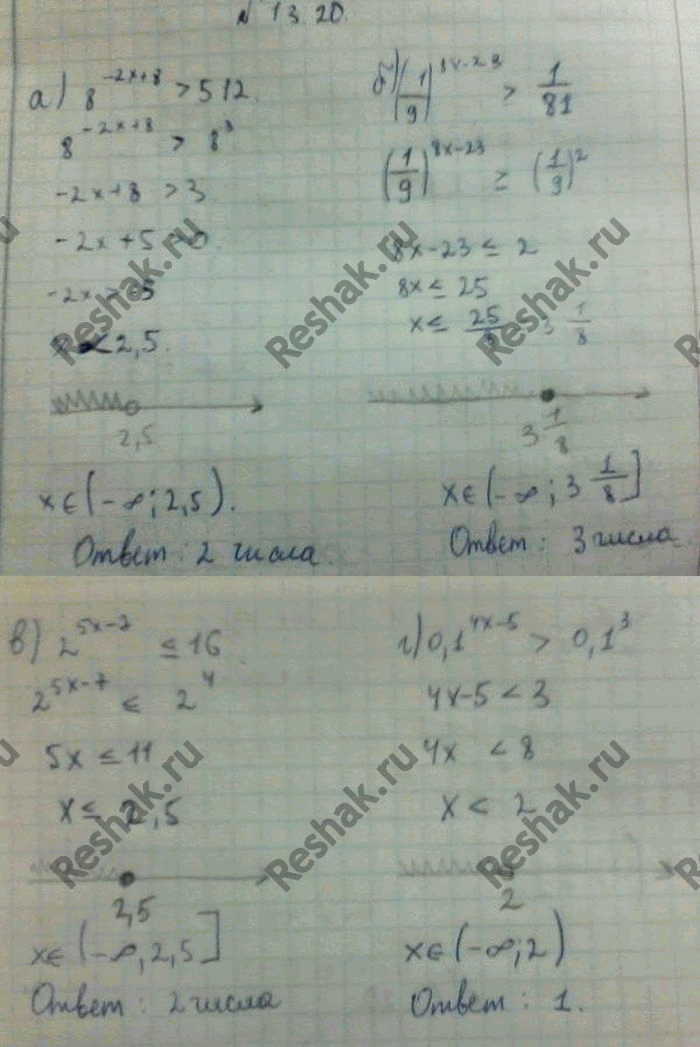 № 13.20.
а) 8^(-2x+8) > 512.
8^(-2x+8) > 8^3
-2x+8 > 3
-2x+5 > 0
-2x > -5
x < 2,5.
2,5
x∈(-∞; 2,5).
Ответ: 2 числа.
б) (1/9)^(8x-23) > 1/81
(1/9)^(8x-23) ≥ (1/9)^2
8x-23 ≤ 2
8x ≤ 25
x ≤ 25/8 3 1/8
3 1/8
x∈(-∞; 3 1/8]
Ответ: 3 числа.
в) 2^(5x-7) ≤ 16
2^(5x-7) ≤ 2^4
5x ≤ 11
x ≤ 2,5
2,5
x∈(-∞, 2,5]
Ответ: 2 числа
г) 0,1^(4x-5) > 0,1^3
4x-5 < 3
4x < 8
x < 2
2
x∈(-∞; 2)
Ответ: 1.
Reshak.ru
Reshak.ru
Reshak.ru
Reshak.ru
Reshak.ru
Reshak.ru
Reshak.ru
Reshak.ru